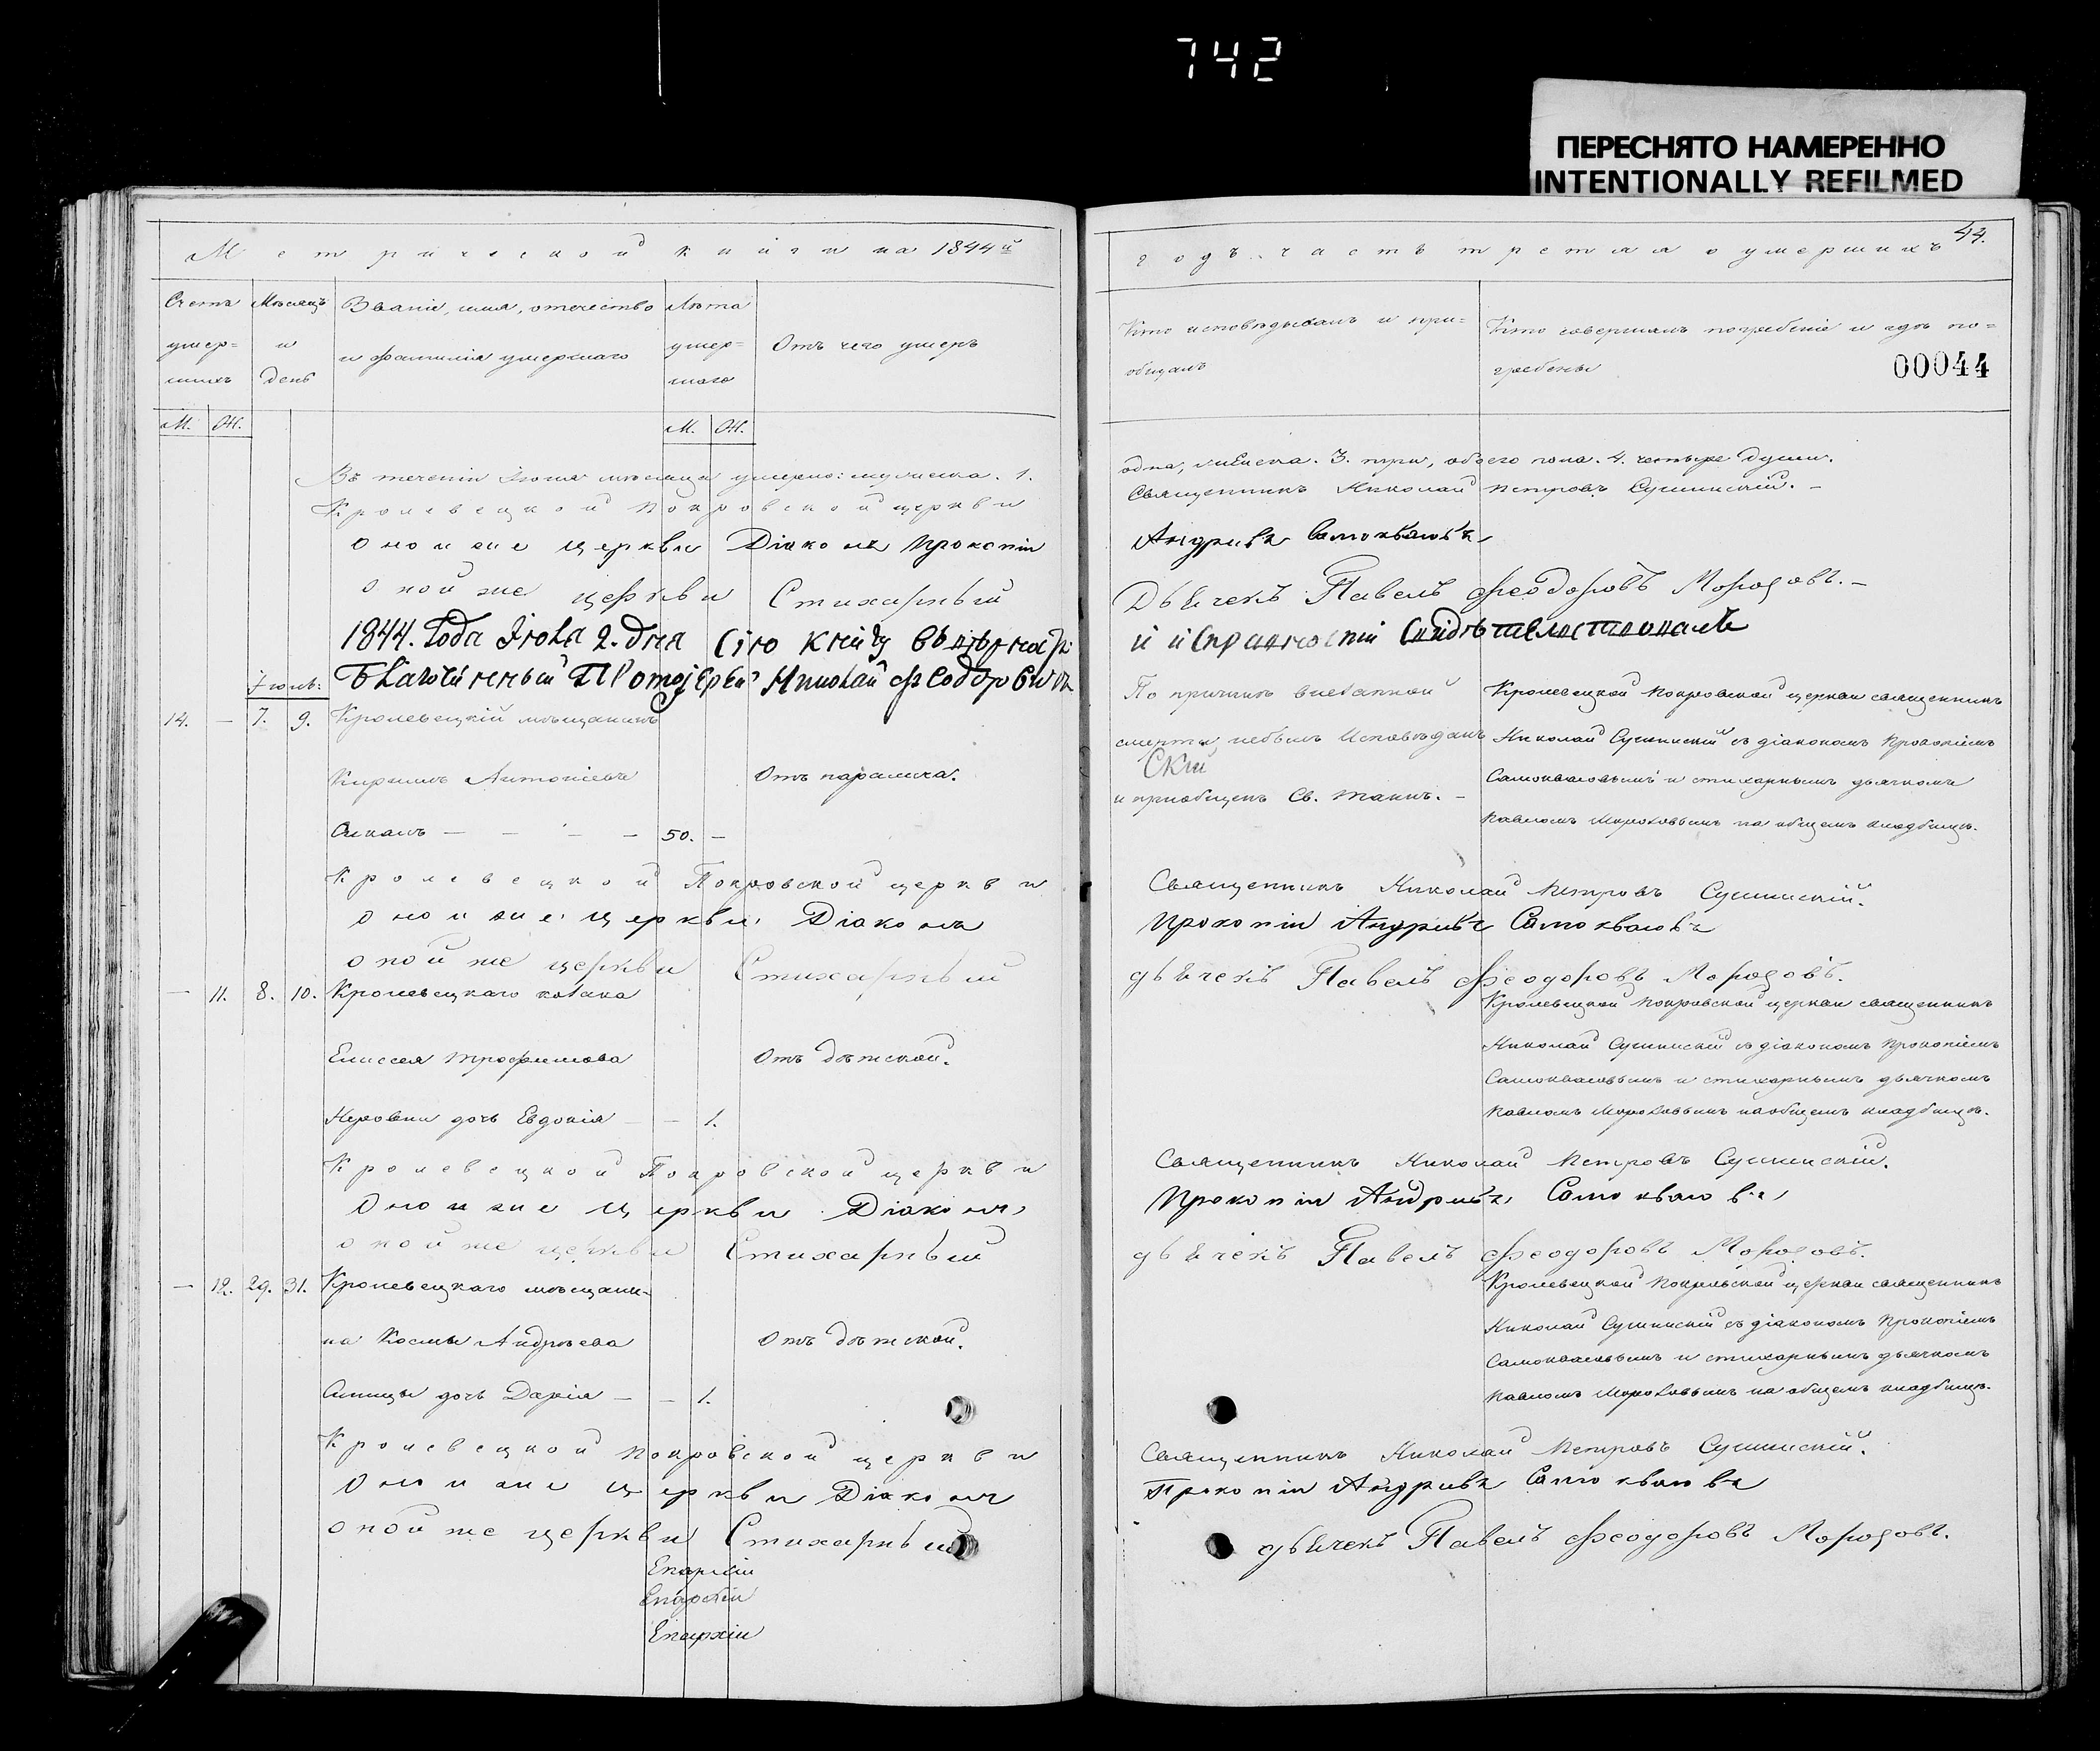 742
ПЕРЕСНЯТО НАМЕРЕННО
INTENTIONALLY REFILMED
Метрической книги на 1844й
Счетъ умер=шихъ
Мѣсяцъ и день
Званіе, имя, отечество и фамилія умершаго
Лѣта умер=шаго
Отъ чего умеръ
М. Ж.
М. Ж.
Въ теченіи Іюня мѣсяца умерло: муж. пола. 1.
Кролевецкой Покровской церкви
оной же церкви Діаконъ Прокопій
оной же церкви Стихарный
1844. Года Іюля 2. Дня Сію книгу
Благочинный Протоіерей Николай Федоровъ
Іюль:
14. — 7. 9. Кролевецкій мѣщанинъ
Кириллъ Антоніевъ Отъ паралича.
— — — — 50. —
Кролевецкой Покровской церкви
оной же церкви Діаконъ
оной же церкви Стихарный
— 11. 8. 10. Кролевецкаго козака
Елисея Трофимова Отъ дѣтской.
дочь Евдокія — — 1.
Кролевецкой Покровской церкви
Оной же церкви Діаконъ
оной же церкви Стихарный
— 12. 29. 31. Кролевецкаго мѣщани-
на Космы Андрѣева Отъ дѣтской.
Синицы дочь Дарія — — 1.
Кролевецкой Покровской церкви
Оной же церкви Діаконъ
оной же церкви Стихарный
Епархіи
Епархіи
Епархіи
44.
годъ. часть третяя о умершихъ
Кто исповѣдывалъ и при=общалъ
Кто совершалъ погребеніе и гдѣ по=гребены
00044
одна, женска. 3. три, обоего пола. 4. четыре души.
Священникъ Николай Петровъ Сушинскій. —
Андріевъ Самокваловъ
Дьячекъ Павелъ Феодоровъ Морозовъ. —
По причинѣ внезапной
смерти, небылъ Исповѣданъ
Скій
и пріобщенъ Св. таинъ. —
Кролевецкой Покровской церкви священникъ
Николай Сушинскій съ діакономъ Прокопіемъ
Самокваловымъ и стихарнымъ дьячкомъ
Павломъ Морозовымъ на общемъ кладбищѣ.
Священникъ Николай Петровъ Сушинскій.
Прокопій Андріевъ Самокваловъ
дьячекъ Павелъ Феодоровъ Морозовъ.
Кролевецкой Покровской церкви священникъ
Николай Сушинскій съ діакономъ Прокопіемъ
Самокваловымъ и стихарнымъ дьячкомъ
Павломъ Морозовымъ на общемъ кладбищѣ.
Священникъ Николай Петровъ Сушинскій.
Прокопій Андріевъ Самокваловъ
дьячекъ Павелъ Феодоровъ Морозовъ.
Кролевецкой Покровской церкви священникъ
Николай Сушинскій съ діакономъ Прокопіемъ
Самокваловымъ и стихарнымъ дьячкомъ
Павломъ Морозовымъ на общемъ кладбищѣ.
Священникъ Николай Петровъ Сушинскій.
Прокопій Андріевъ Самокваловъ
дьячекъ Павелъ Феодоровъ Морозовъ.